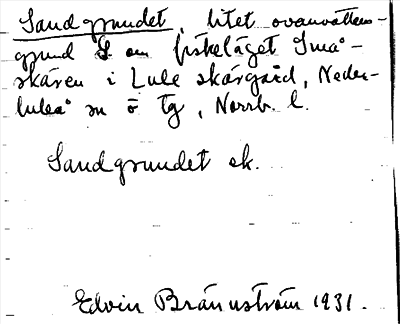 Sandgrundet, litet ovanvattens-
grund S om fiskeläget Små-
skären i Lule skärgård, Neder-
luleå sn ö tg, Norrb. l.
Sandgrundet ek.
Edvin Brännström 1931.